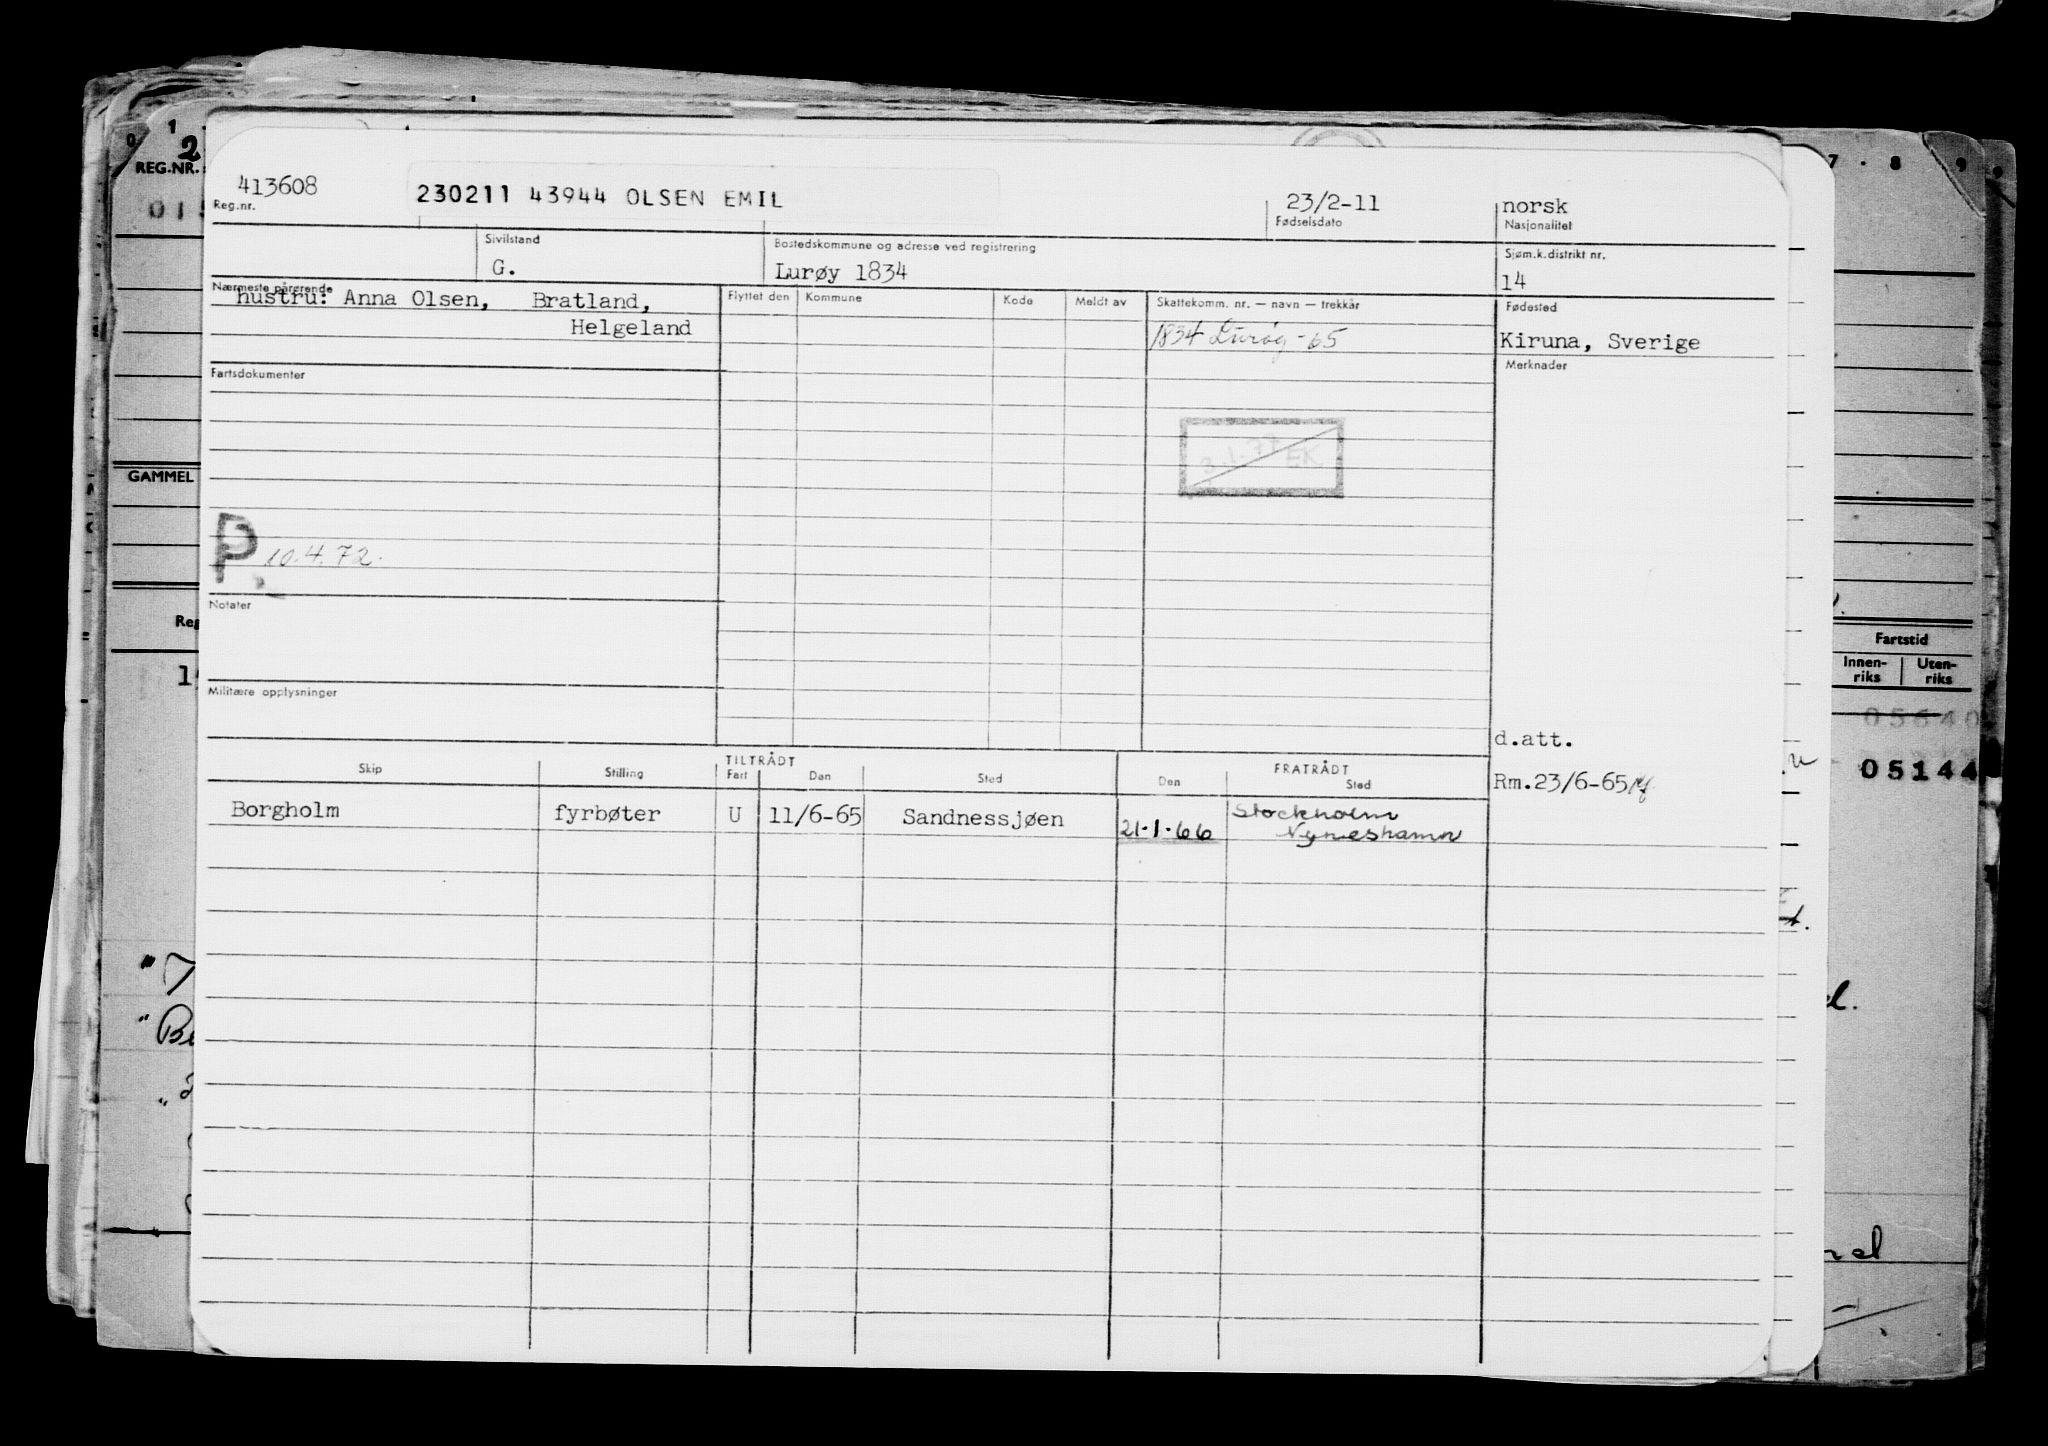 0 1 7 8 9
2
REG.NR.
GAMMEL
Reg
Fartstid
Innen-riks Uten-riks
05640
05144
413608 230211 43944 OLSEN EMIL 23/2-11 norsk
Reg.nr. Fødselsdato Nasjonalitet
Sivilstand Bostedskommune og adresse ved registrering Sjøm.k.distrikt nr.
G. Lurøy 1834 14
Nærmeste pårørende Flyttet den Kommune Kode Meldt av Skattekomm. nr. — navn — trekkår Fødested
hustru: Anna Olsen, Bratland,
Helgeland 1834 Lurøy -65 Kiruna, Sverige
Fartsdokumenter Merknader
3.1.77 EK
P. 10.4.72.
Notater
Militære opplysninger
d.att.
TILTRÅDT FRATRÅDT
Skip Stilling Fart Den Sted Den Sted
Rm.23/6-65
Borgholm fyrbøter U 11/6-65 Sandnessjøen 21.1.66 Stockholm
Nyneshamn